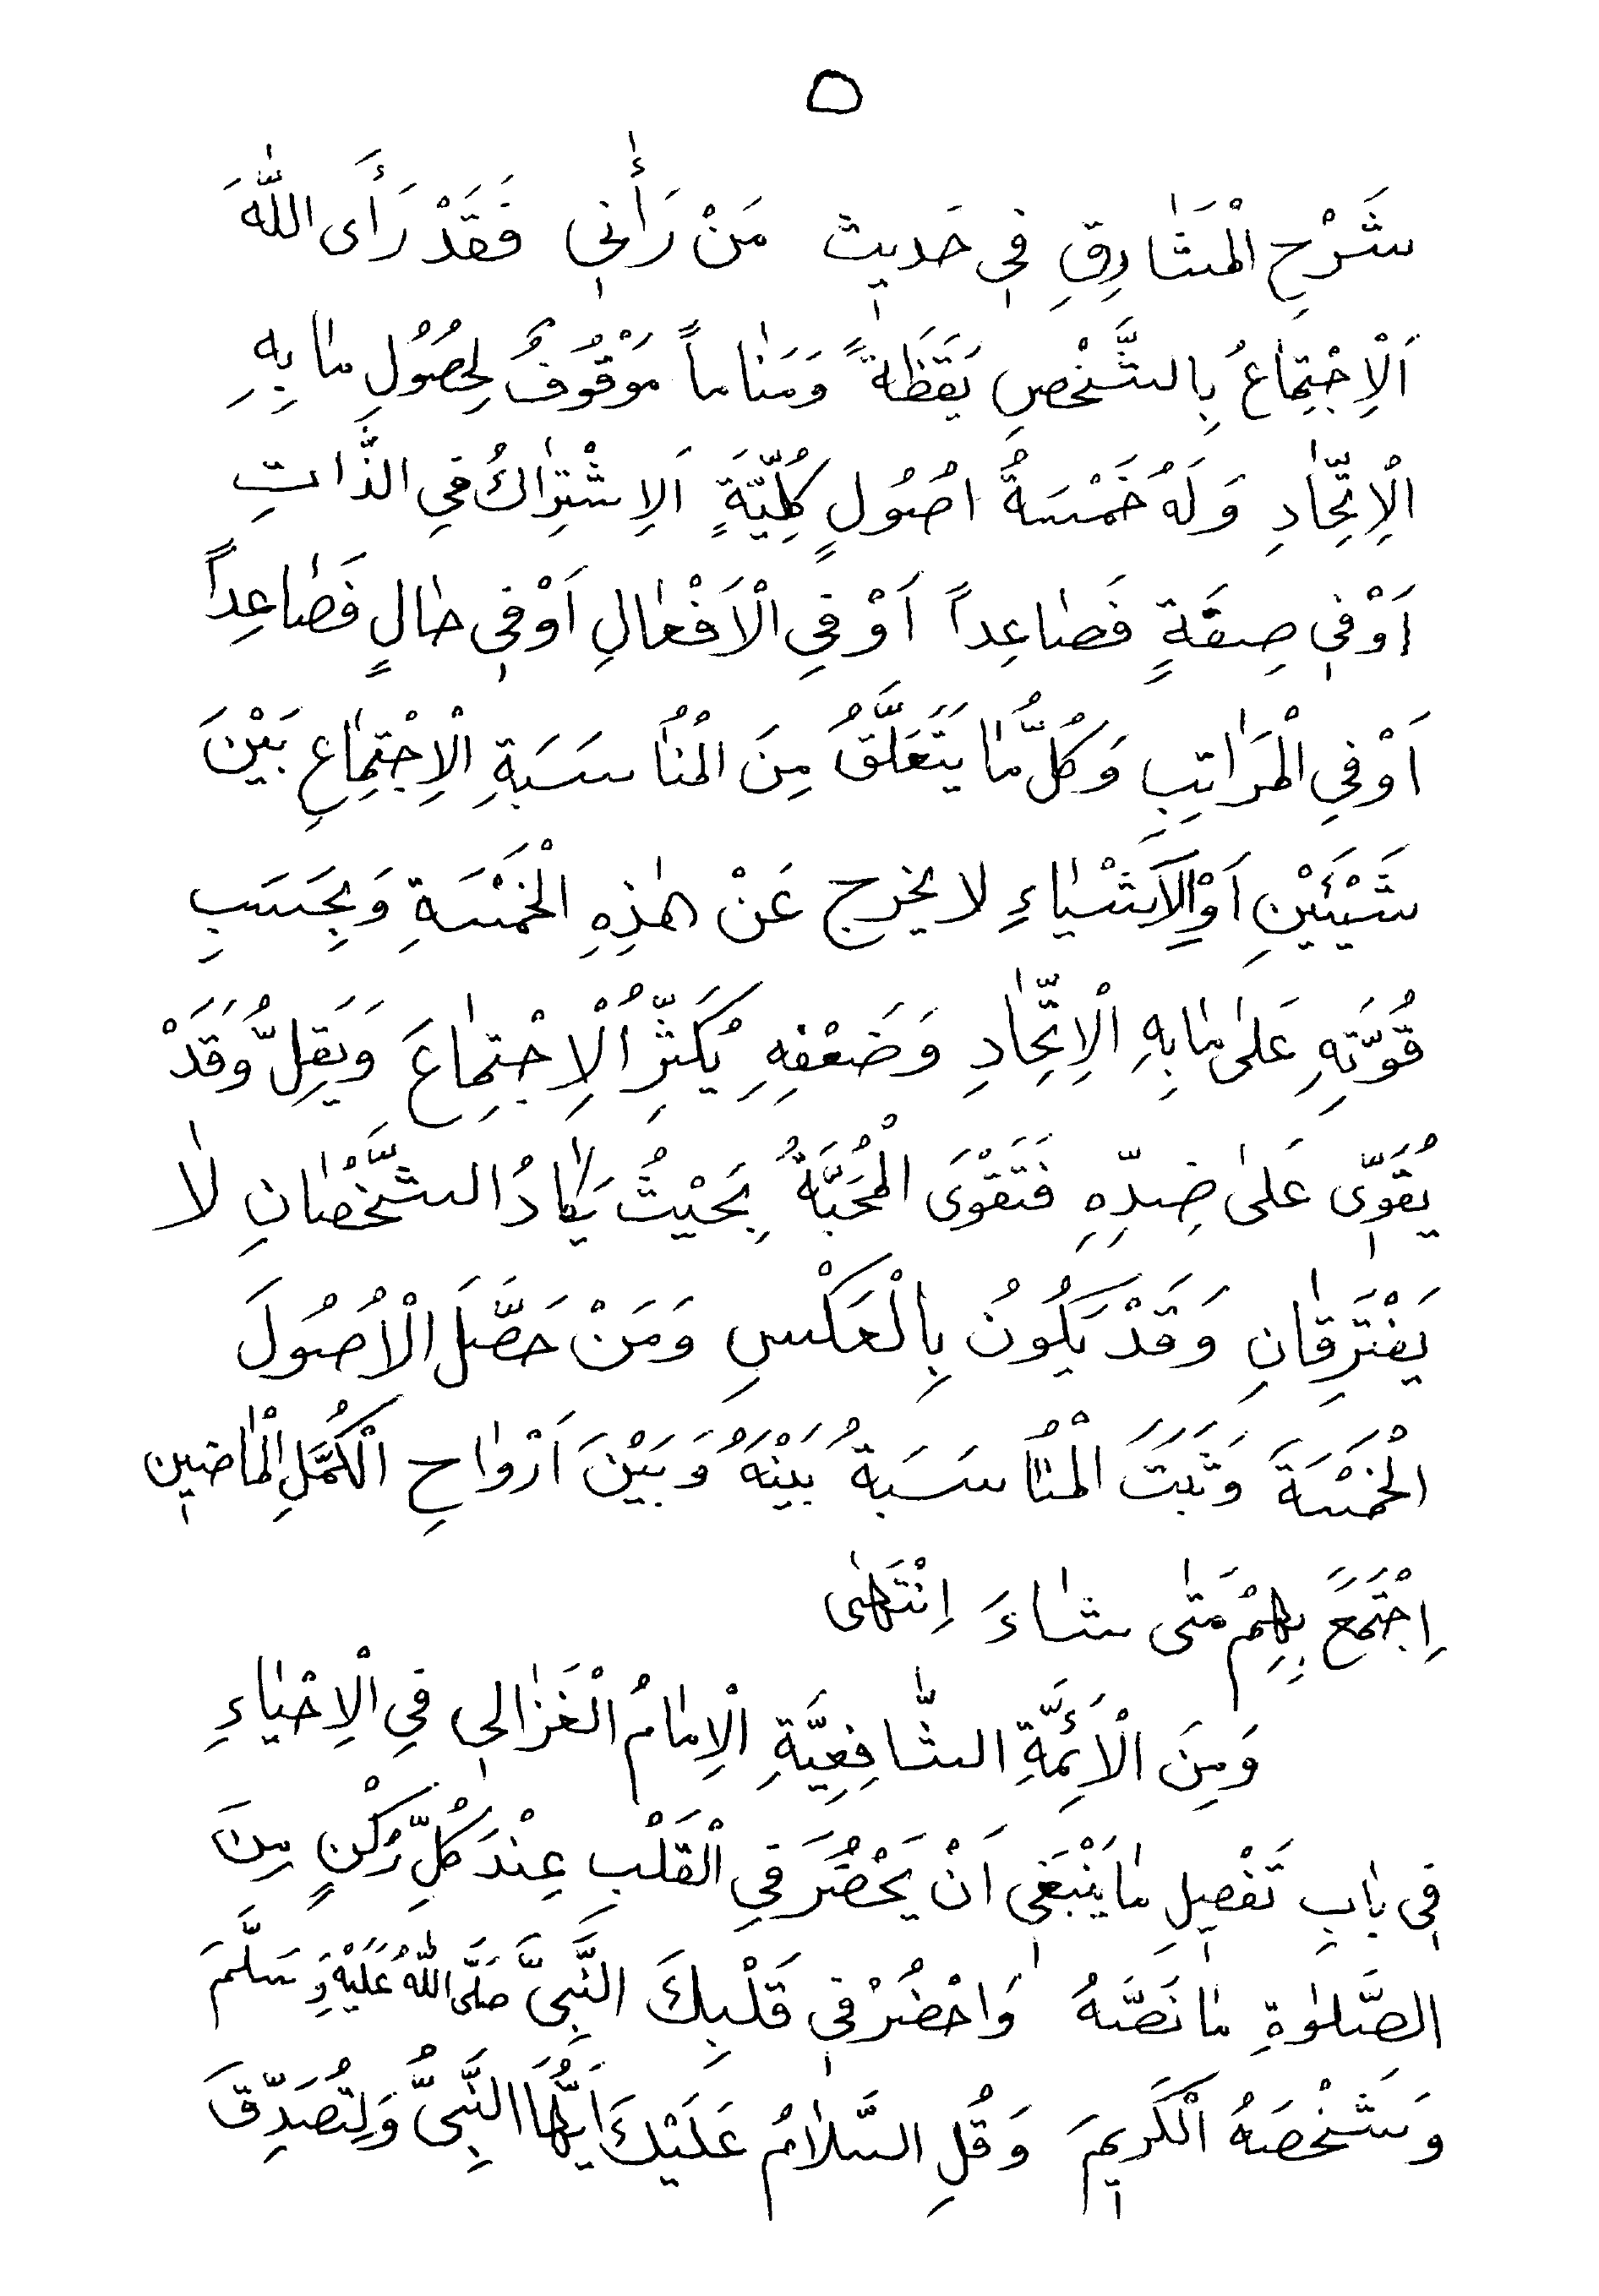 ٥
شَرْحِ الْمَشَارِقِ فِي حَدِيثِ مَنْ رَأٰنِي فَقَدْ رَأَى اللّٰهَ
اَلْاِجْتِمَاعُ بِالشَّخْصِ يَقَظَةً وَمَنَاماً مَوْقُوفٌ لِحُصُولِ مٰا بِهِ
الْاِتِّحٰادِ وَلَهُ خَمْسَةُ اصُولٍ كُلِّيَّةٍ اَلِاشْتِرٰاكُ فِي الذَّاتِ
اَوْ فِي صِفَةٍ فَصٰاعِداً اَوْ فِي الْاَفْعٰالِ اَوْ فِي حٰالٍ فَصٰاعِداً
اَوْ فِي الْمَرٰاتِبِ وَكُلُّ مٰا يَتَعَلَّقُ مِنَ الْمُنٰاسَبَةِ الْاِجْتِمٰاعِ بَيْنَ
شَيْئَيْنِ اَوِ الْاَشْيٰاءِ لا يخرج عَنْ هٰذِهِ الْخَمْسَةِ وَبِحَسَبِ
قُوَّتِهِ عَلىٰ مٰا بِهِ الْاِتِّحٰادِ وَضَعْفِهِ يُكَثِّرُ الْاِجْتِمٰاعَ وَيَقِلُّ وَقَدْ
يُقَوِّي عَلىٰ ضِدِّهِ فَتَقْوَى الْمُحَبَّةُ بِحَيْثُ يَكٰادُ الشَّخْصٰانِ لٰا
يَفْتَرِقٰانِ وَقَدْ يَكُونُ بِالْعَكْسِ وَمَنْ حَصَّلَ الْاُصُولَ
الْخَمْسَةَ وَثَبَتَ الْمُنٰاسَبَةُ بَيْنَهُ وَبَيْنَ اَرْوٰاحِ الْكُمَّلِ الْمٰاضِينِ
اِجْتَمَعَ بِهِمْ مَتٰى شٰاءَ اِنْتَهٰى
وَمِنَ الْاَئِمَّةِ الشَّافِعِيَّةِ الْاِمٰامُ الْغَزٰالِي فِي الْاِحْيٰاءِ
فِي بٰابِ تَفْصِيلِ مٰا يَنْبَغِي اَنْ يَحْضُرَ فِي الْقَلْبِ عِنْدَ كُلِّ رُكْنٍ مِنَ
الصَّلوٰةِ مٰا نَصَّهُ وَاحْضُرْ فِي قَلْبِكَ النَّبِيَّ صَلَّى اللّٰهُ عَلَيْهِ وَسَلَّمَ
وَشَخْصَهُ الْكَرِيمَ وَقُلِ السَّلٰامُ عَلَيْكَ اَيُّهَا النَّبِيُّ وَلِتُصَدِّقَ